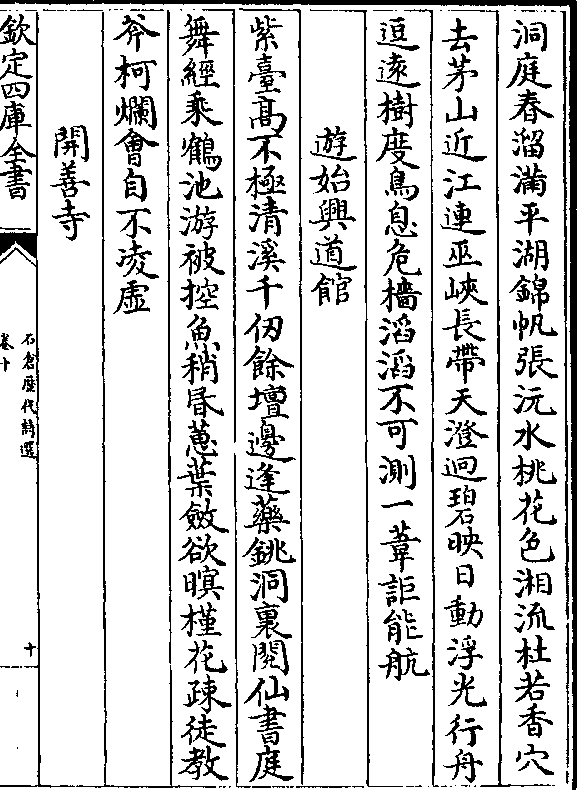 洞庭春溜滿平湖錦帆張沅水桃花色湘流杜若香穴
去茅山近江連巫峽長帶天澄逈碧映日動浮光行舟
逗遠樹度鳥息危檣滔滔不可測一葦詎能航
遊始興道館
紫臺髙不極清溪千仞餘壇邊逢藥銚洞裏閱仙書庭
舞經乘鶴池游被控魚稍昏蔥葉斂欲暝槿花疎徒教
斧柯爛會自不凌虛
開善寺
欽定四庫全書
石倉歷代詩選
卷十
十